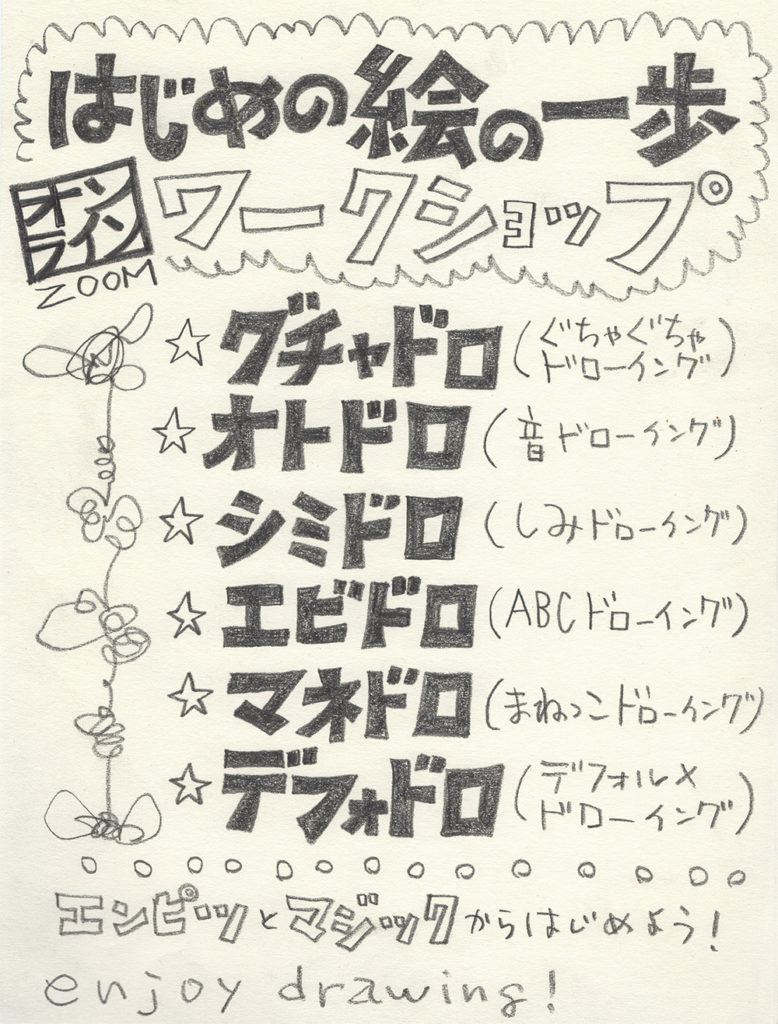 はじめの絵の一歩
オンライン
ZOOM
ワークショップ
☆ グチャドロ (ぐちゃぐちゃ
ドローイング)
☆ オトドロ (音ドローイング)
☆ シミドロ (しみドローイング)
☆ エビドロ (ABCドローイング)
☆ マネドロ (まねっこドローイング)
☆ デフォドロ (デフォルメ
ドローイング)
エンピツとマジックからはじめよう!
enjoy drawing!